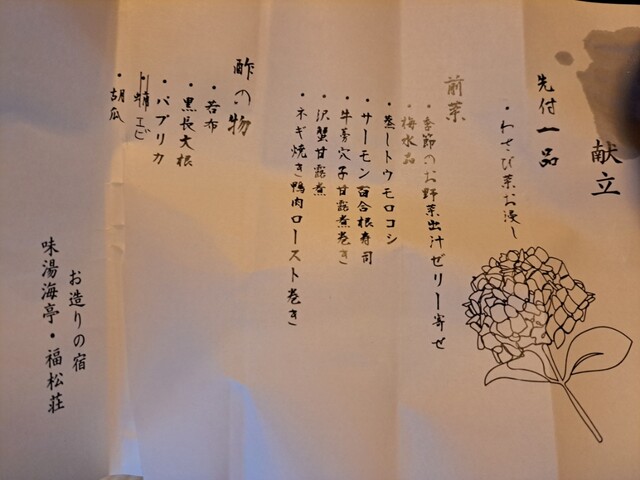 献立
先付一品
・わさび菜お浸し
前菜
・季節のお野菜出汁ゼリー寄せ
・梅水晶
・蒸しトウモロコシ
・サーモン百合根寿司
・牛蒡穴子甘露煮巻き
・沢蟹甘露煮
・ネギ焼き鴨肉ロースト巻き
酢の物
・若布
・黒長大根
・パプリカ
エビ
・胡瓜
お造りの宿
味湯海亭・福松荘